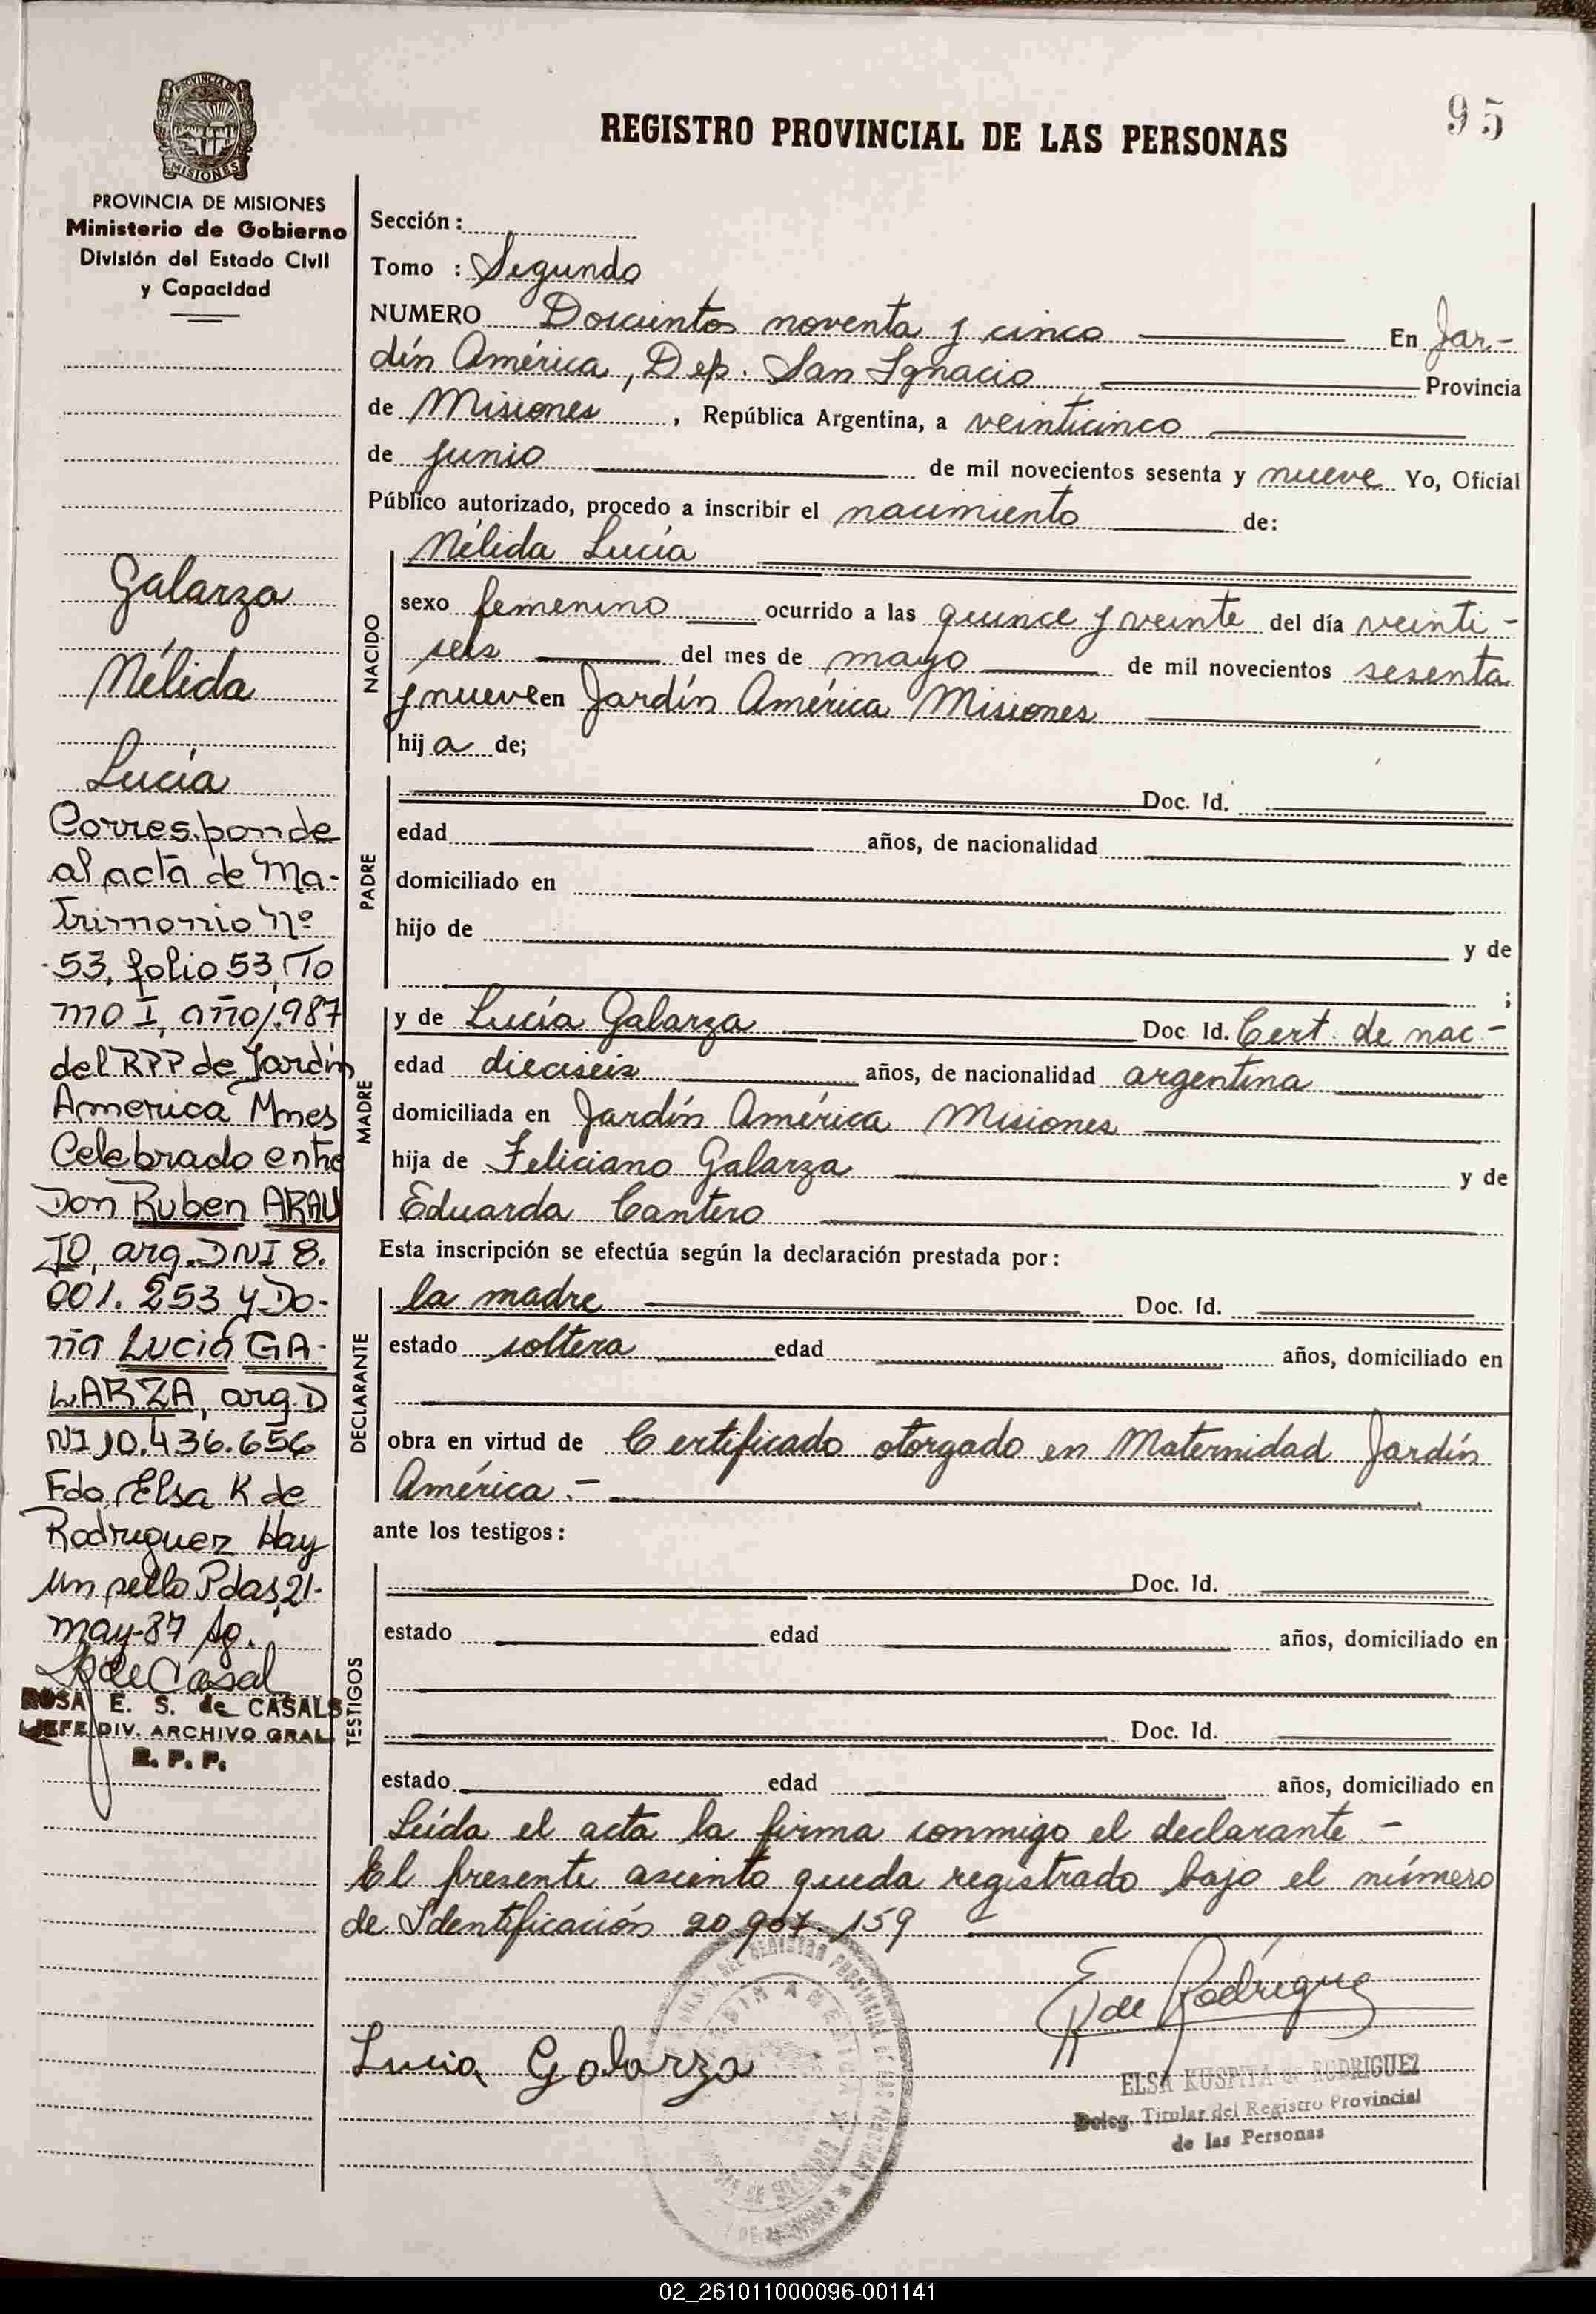 95
REGISTRO PROVINCIAL DE LAS PERSONAS
PROVINCIA DE
MISIONES
PROVINCIA DE MISIONES
Ministerio de Gobierno
División del Estado Civil
y Capacidad
Galarza
Nélida
Lucía
Corresponde
al acta de Ma-
trimonio Nº
53, folio 53, To
mo I, año 1.987
del RPP de Jardín
America Mnes
Celebrado entre
Don Ruben ARAU
JO, arg. DNI 8.
001.253 y Do-
ña Lucia GA-
LARZA, arg. D
NI 10.436.656
Fdo, Elsa K de
Rodriguez Hay
un sello Pdas, 21-
may-87
de Casal
ROSA E. S. de CASALS
JEFE DIV. ARCHIVO GRAL
R. P. P.
Sección :
Tomo : Segundo
NUMERO Doscientos noventa y cinco En Jar-
dín América, Dep. San Ignacio Provincia
de Misiones , República Argentina, a veinticinco
de junio de mil novecientos sesenta y nueve Yo, Oficial
Público autorizado, procedo a inscribir el nacimiento de:
NACIDO
Nélida Lucía
sexo femenino ocurrido a las quince y veinte del día veinti-
seis del mes de mayo de mil novecientos sesenta
y nueve en Jardín América Misiones
hija de;
PADRE
Doc. Id.
edad años, de nacionalidad
domiciliado en
hijo de y de
;
MADRE
y de Lucía Galarza Doc. Id. Cert. de nac-
edad dieciseis años, de nacionalidad argentina
domiciliada en Jardín América Misiones
hija de Feliciano Galarza y de
Eduarda Cantero
Esta inscripción se efectúa según la declaración prestada por:
DECLARANTE
la madre Doc. Id.
estado soltera edad años, domiciliado en
obra en virtud de Certificado otorgado en Maternidad Jardín
América.-
ante los testigos:
TESTIGOS
Doc. Id.
estado edad años, domiciliado en
Doc. Id.
estado edad años, domiciliado en
Leída el acta la firma conmigo el declarante.-
El presente asiento queda registrado bajo el número
de Identificación 20.907.159
E K de Rodriguez
Lucia Galarza
ELSA KUSPITA de RODRIGUEZ
Deleg. Titular del Registro Provincial
de las Personas
02_261011000096-001141